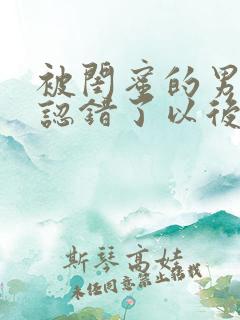 被閨蜜的男
認錯了以後
斯琴高娃
未經同意禁止轉載